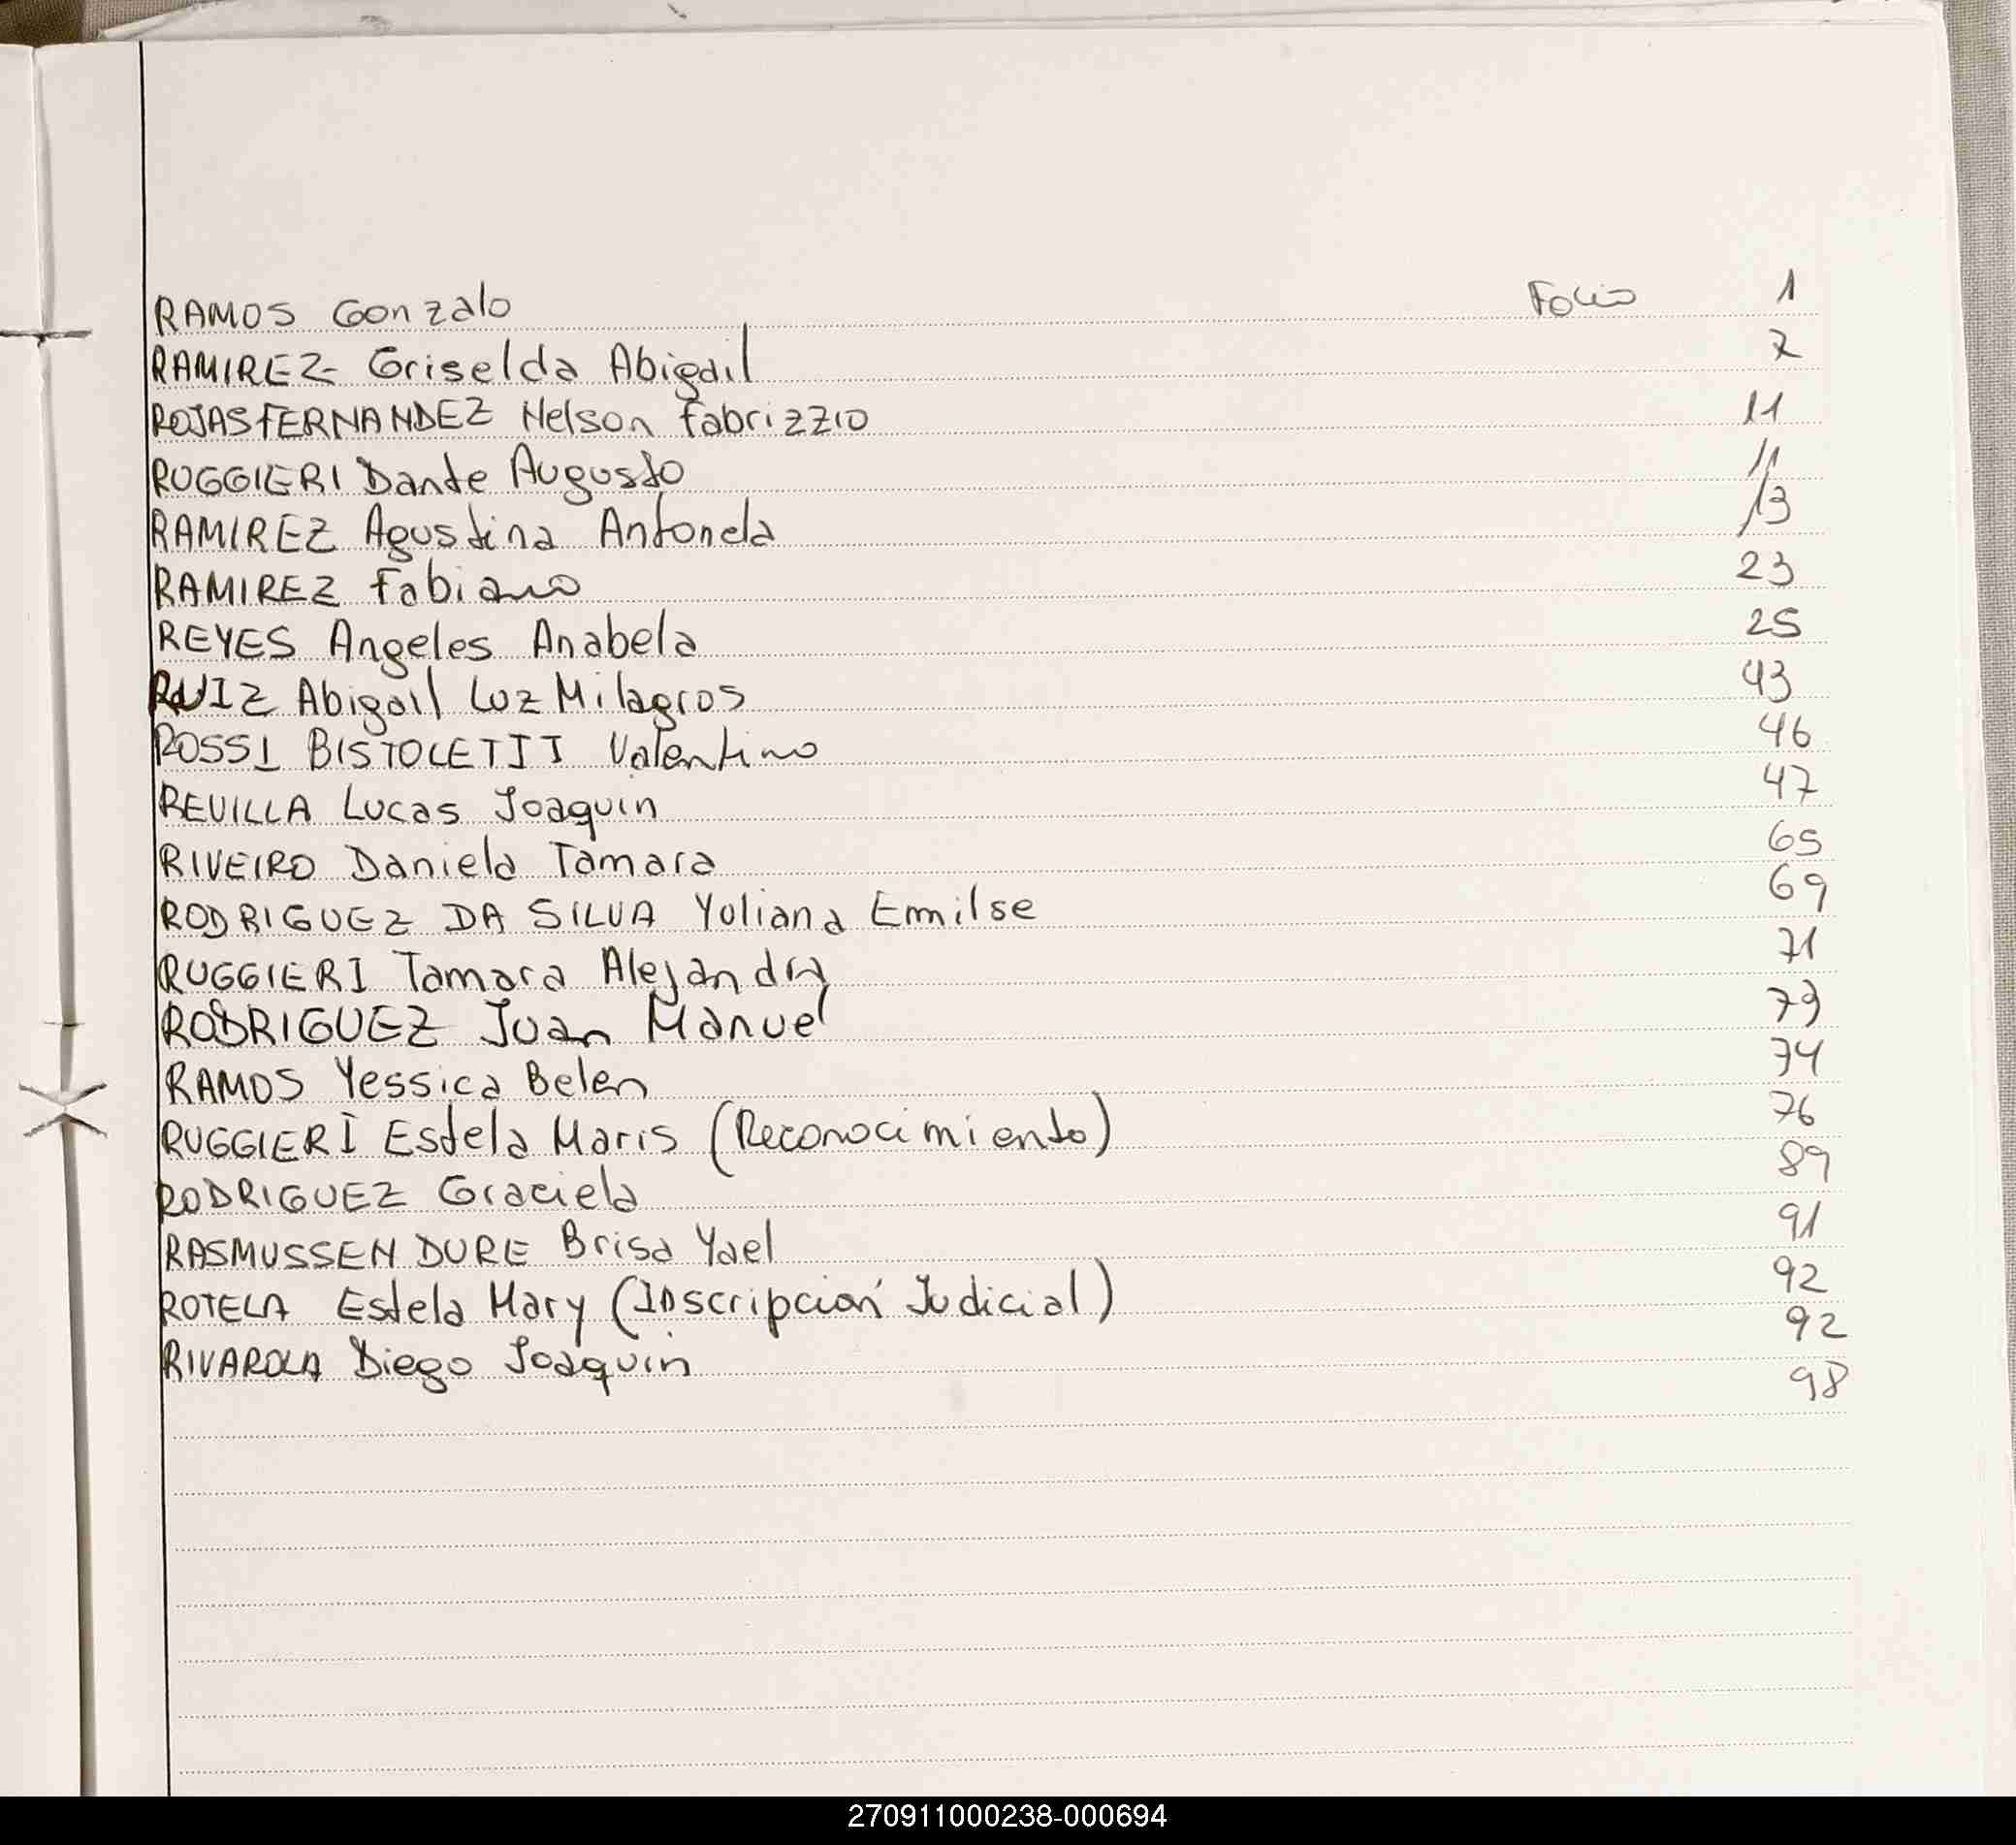 RAMOS Gonzalo Folio 1
RAMIREZ Griselda Abigail 7
ROJAS FERNANDEZ Nelson Fabrizzio 11
RUGGIERI Dante Augusto 11
RAMIREZ Agustina Antonela 13
RAMIREZ Fabiano 23
REYES Angeles Anabela 25
RUIZ Abigail Luz Milagros 43
ROSSI BISTOLETTI Valentino 46
REVILLA Lucas Joaquin 47
RIVEIRO Daniela Tamara 65
RODRIGUEZ DA SILVA Yuliana Emilse 69
RUGGIERI Tamara Alejandra 71
RODRIGUEZ Juan Manuel 73
RAMOS Yessica Belen 74
RUGGIERI Estela Maris (Reconocimiento) 76
RODRIGUEZ Graciela 89
RASMUSSEN DURE Brisa Yael 91
ROTELA Estela Mary (Inscripción Judicial) 92
RIVAROLA Diego Joaquin 92
98
270911000238-000694